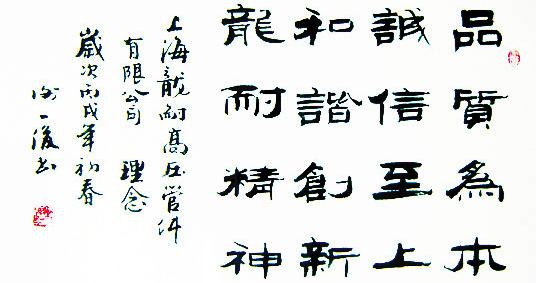 品質為本
誠信至上
和諧創新
龍耐精神
上海龍耐高压管件
有限公司 理念
歲次丙戌年初春